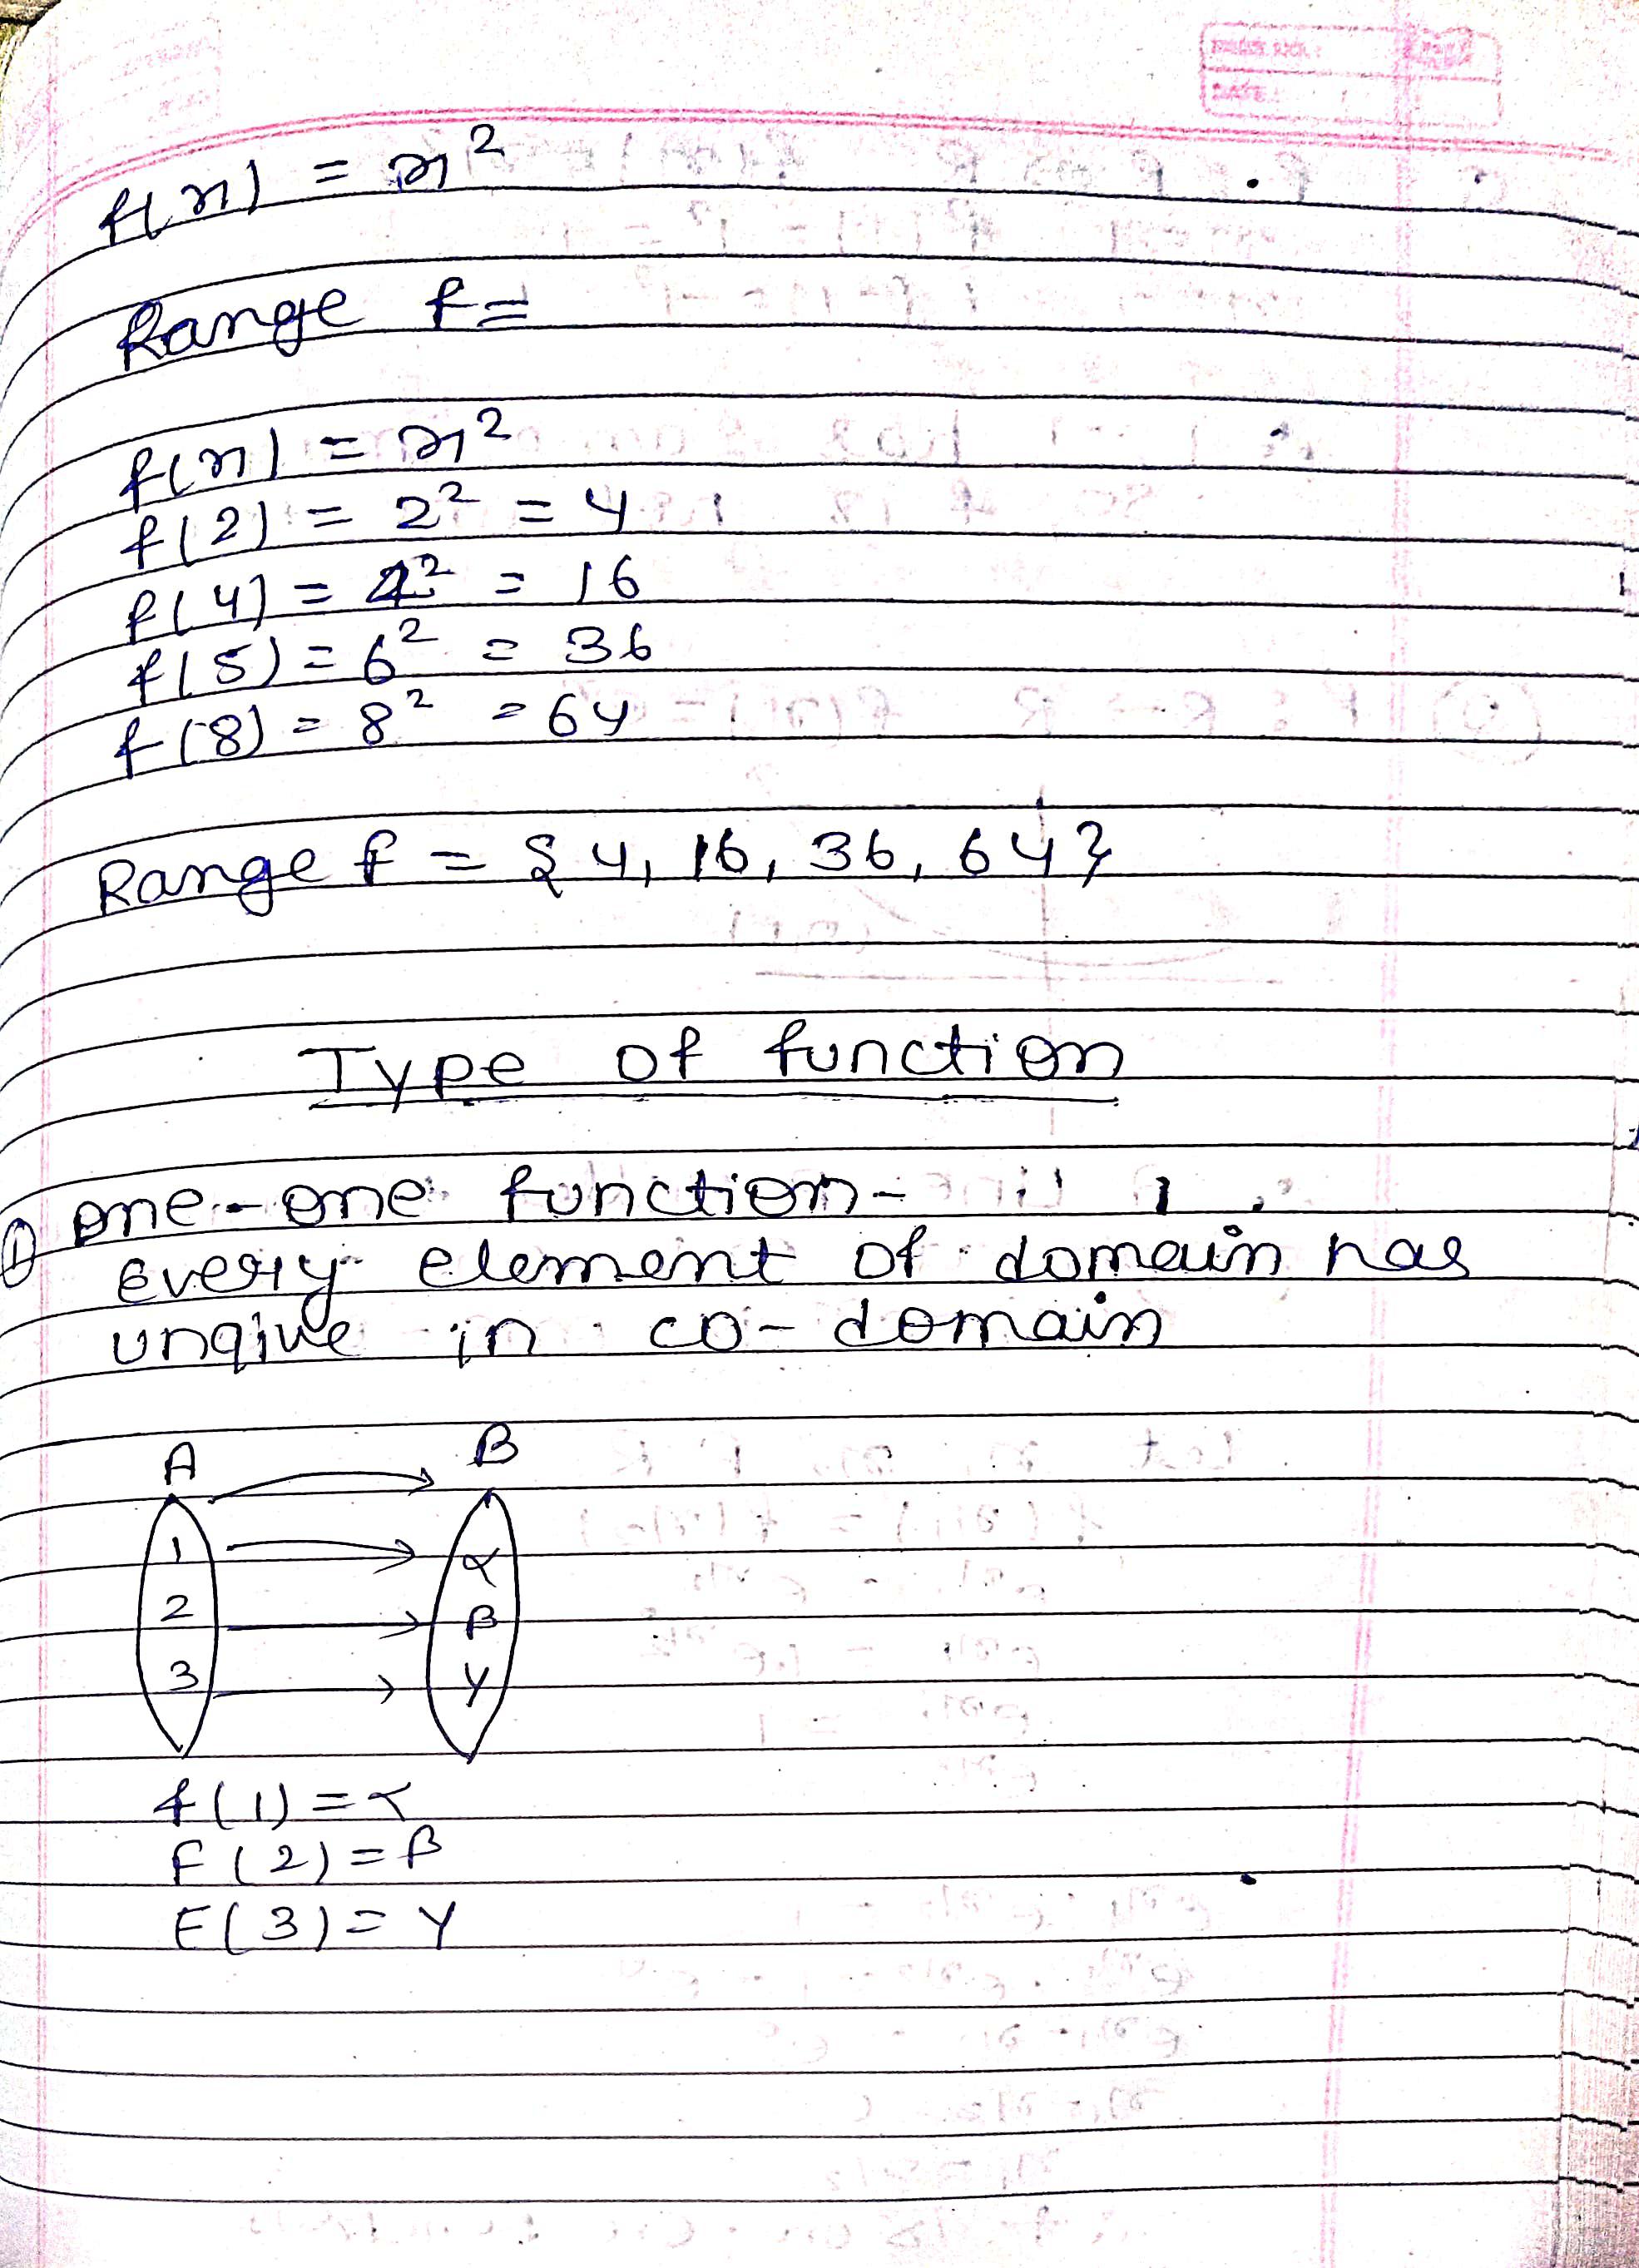 f(x) = x²
Range f =
f(x) = x²
f(2) = 2² = 4
f(4) = 4² = 16
f(5) = 6² = 36
f(8) = 8² = 64
Range f = {4, 16, 36, 64}
Type of function
① one-one function -
every element of domain has
unqiue in co-domain
A B
1 α
2 β
3 γ
f(1) = α
F(2) = β
F(3) = γ